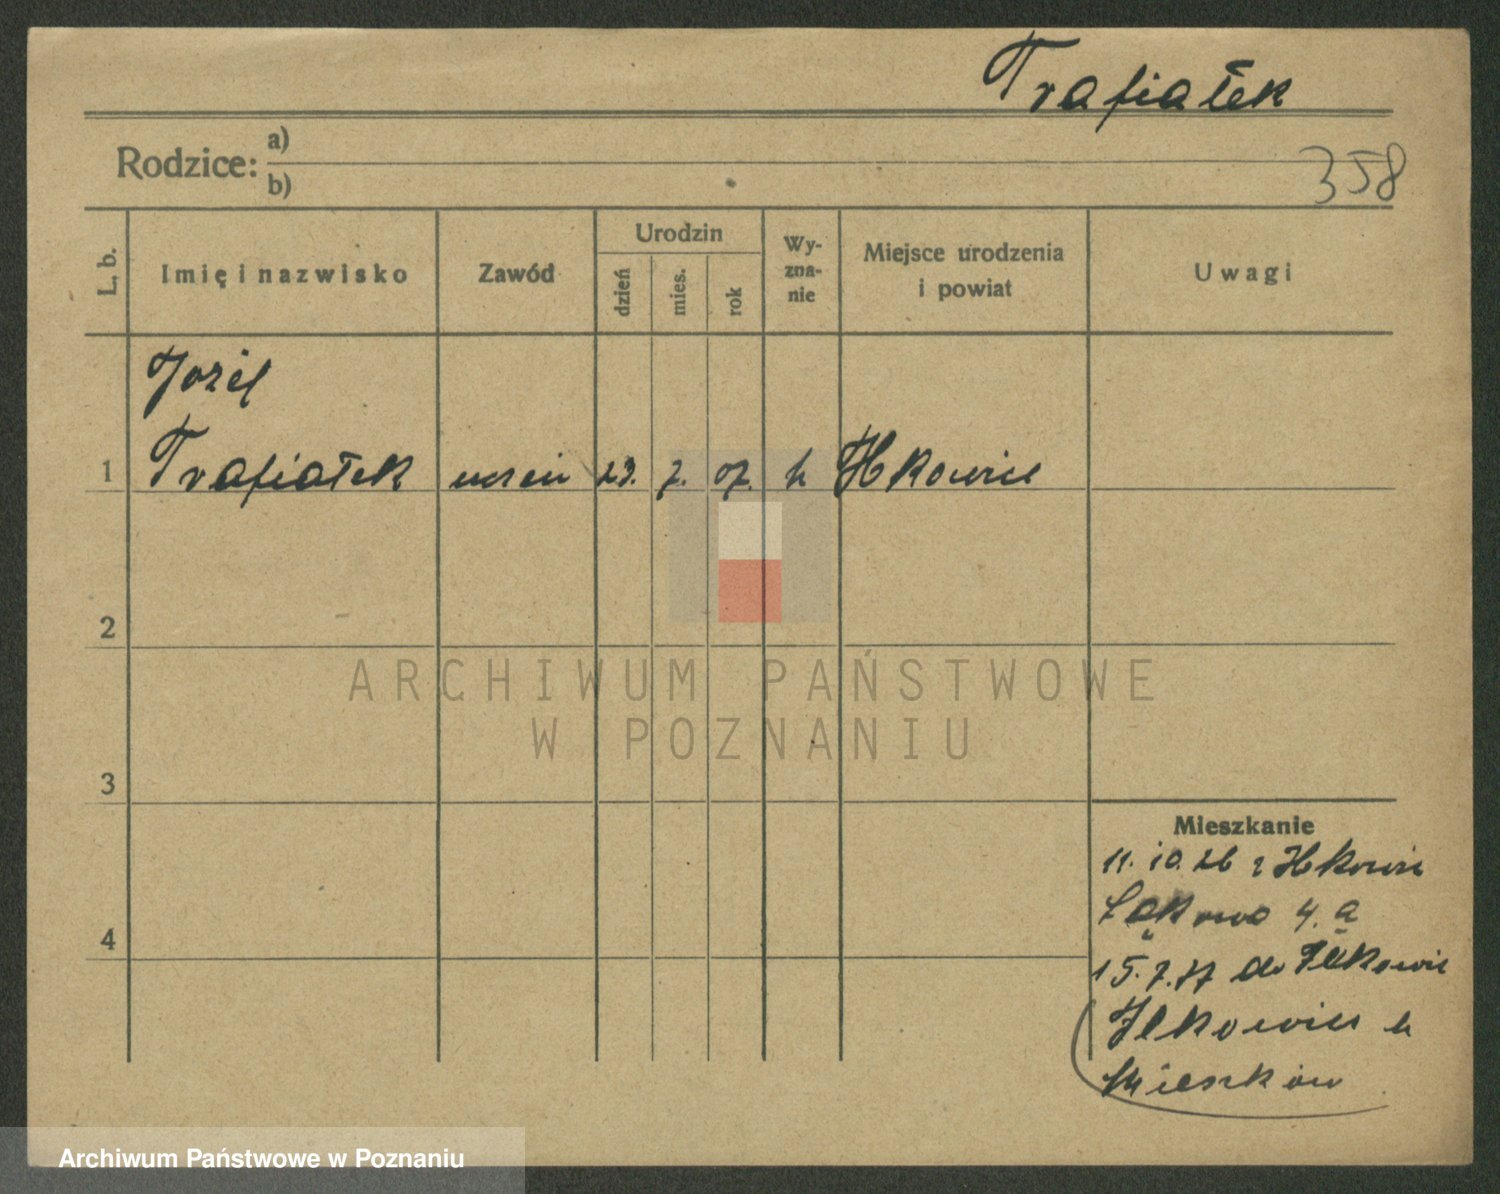 Trafiałek
Rodzice: a)
b)
358
L. b.
Imię i nazwisko
Zawód
Urodzin
dzień
mies.
rok
Wy-
zna-
nie
Miejsce urodzenia
i powiat
Uwagi
Józef
1 Trafiałek uczeń 23. 7. 07. k Ilkowice
2
3
4
Mieszkanie
11. 10. 26 z Ilkowic
Łąkowa 4. a
15. 7. 27 do Ilkowic
Ilkowice
ARCHIWUM PAŃSTWOWE
W POZNANIU
Archiwum Państwowe w Poznaniu